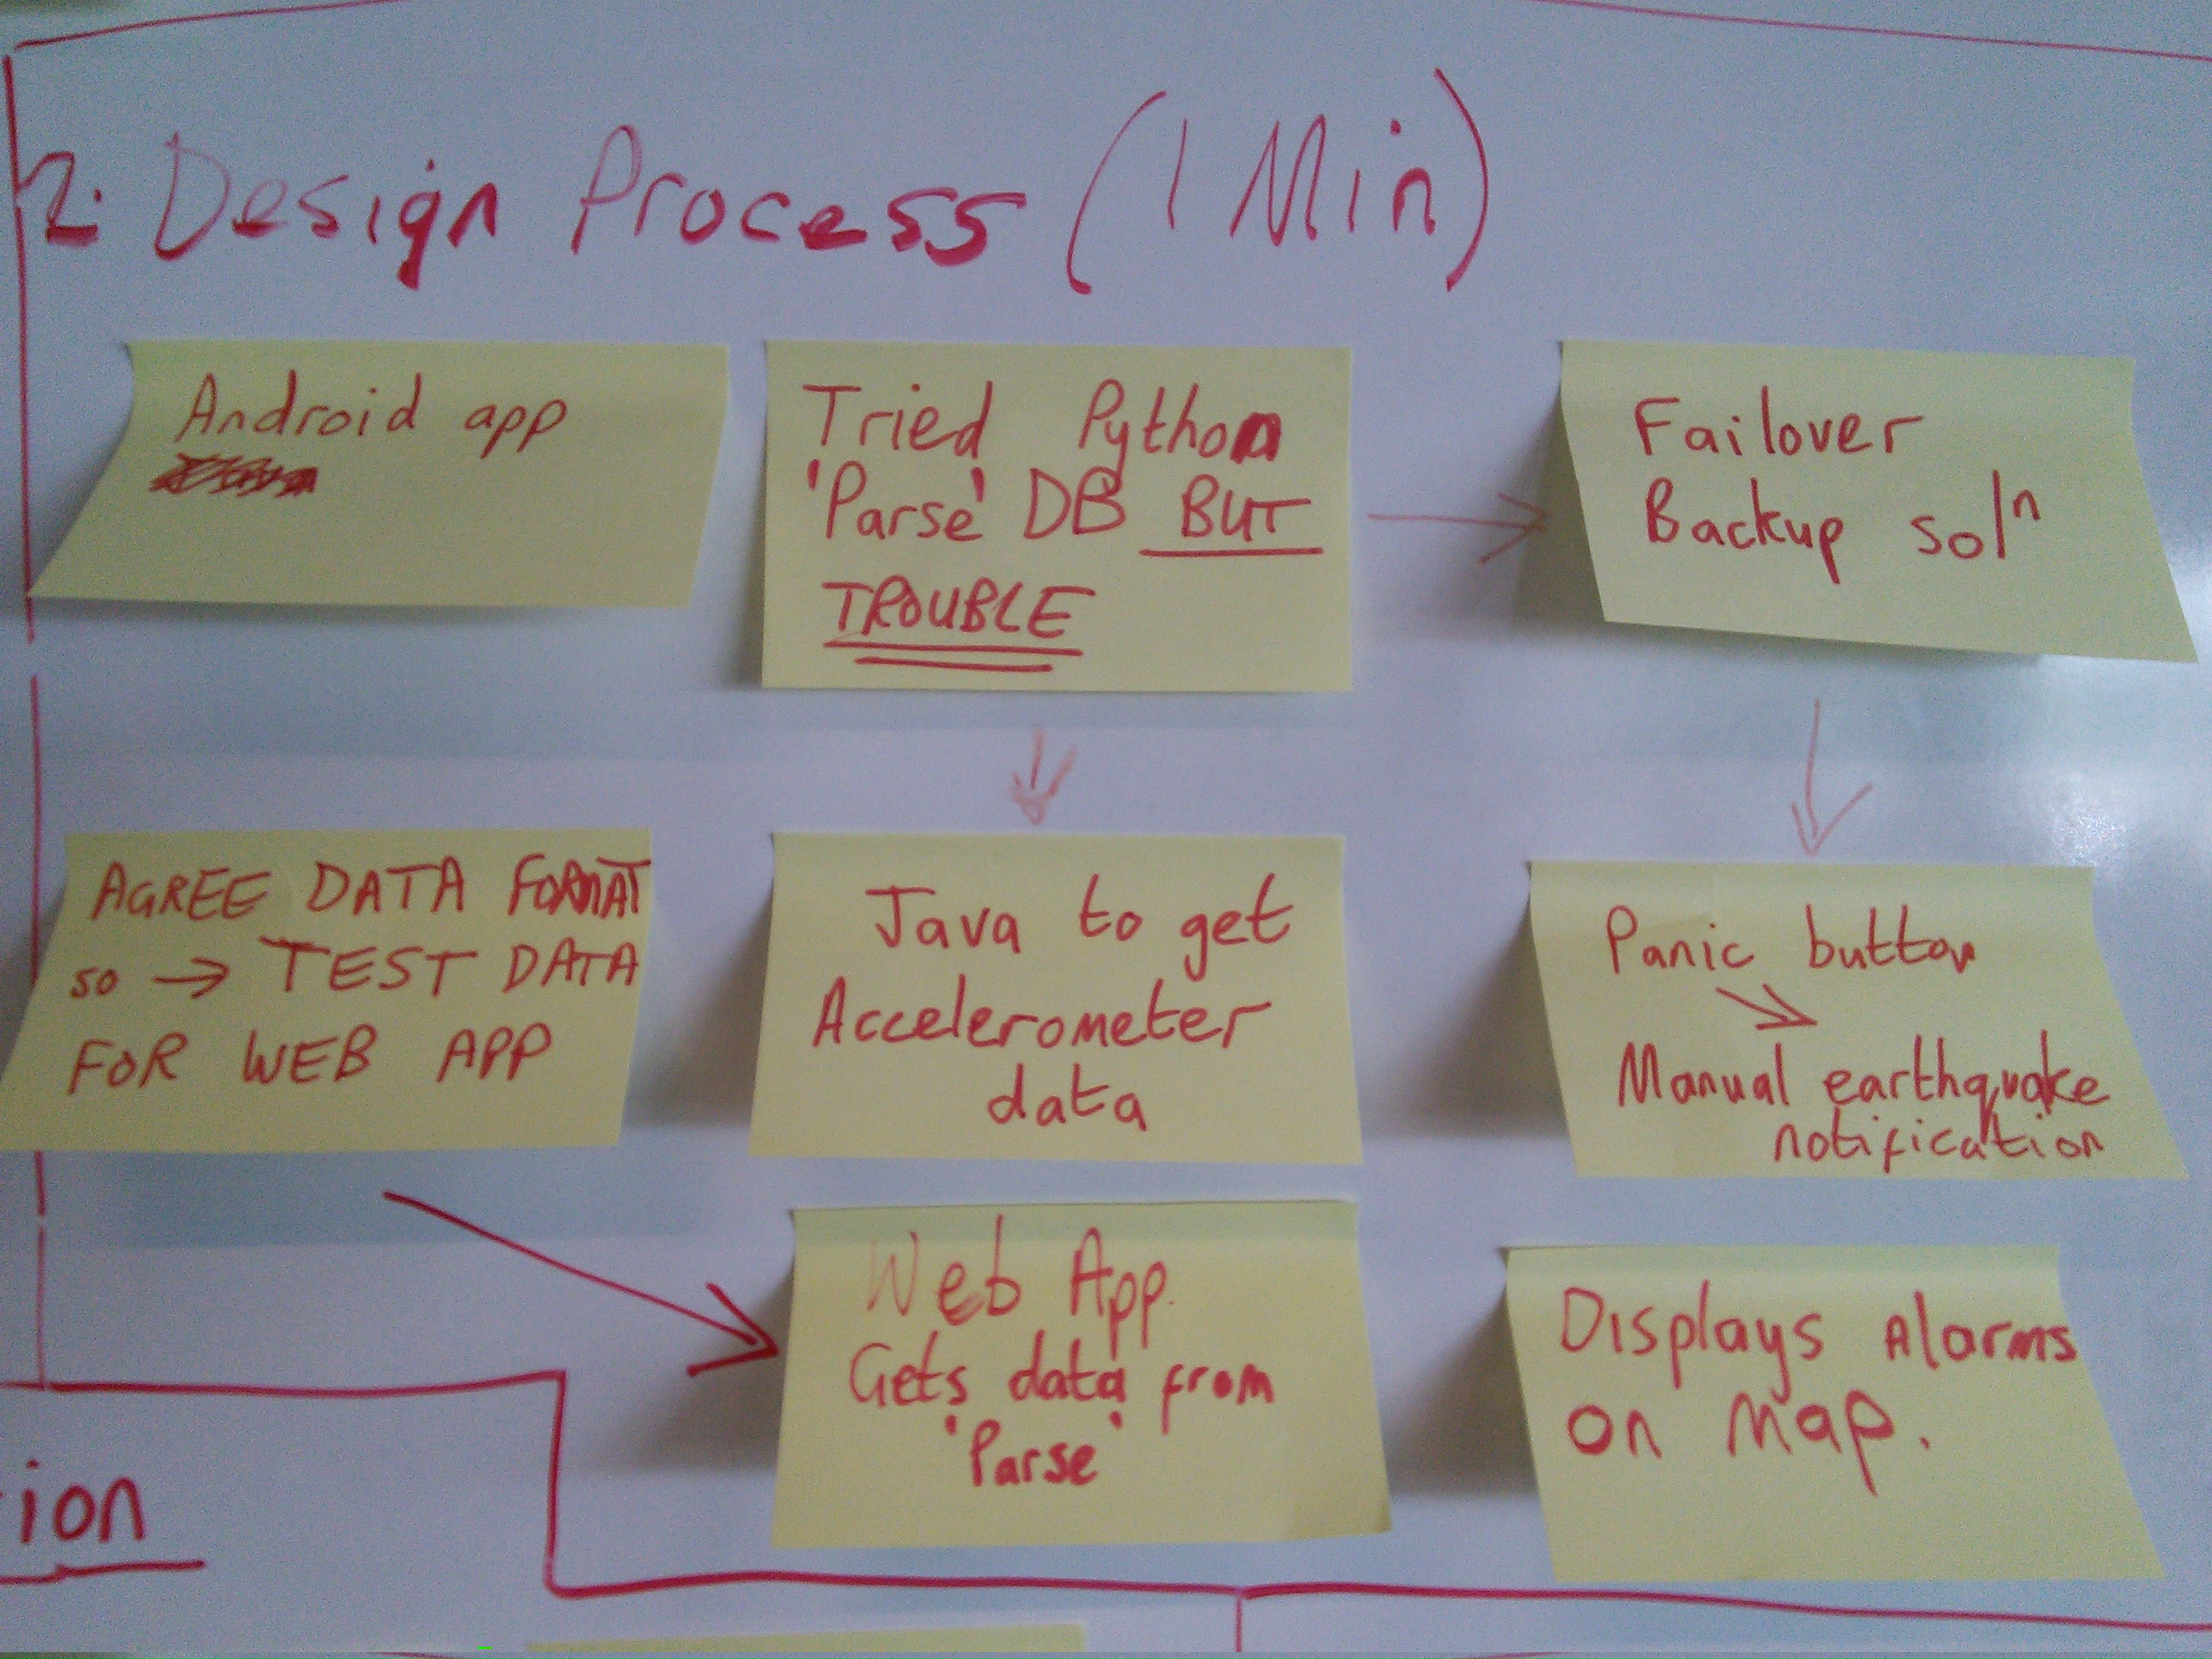 2. Design Process (1 Min)
Android app
Tried Python
'Parse' DB BUT
TROUBLE
Failover
Backup solⁿ
AGREE DATA FORMAT
so → TEST DATA
FOR WEB APP
Java to get
Accelerometer
data
Panic button
Manual earthquake
notification
Web App.
Gets data from
'Parse'
Displays Alarms
on Map.
ion